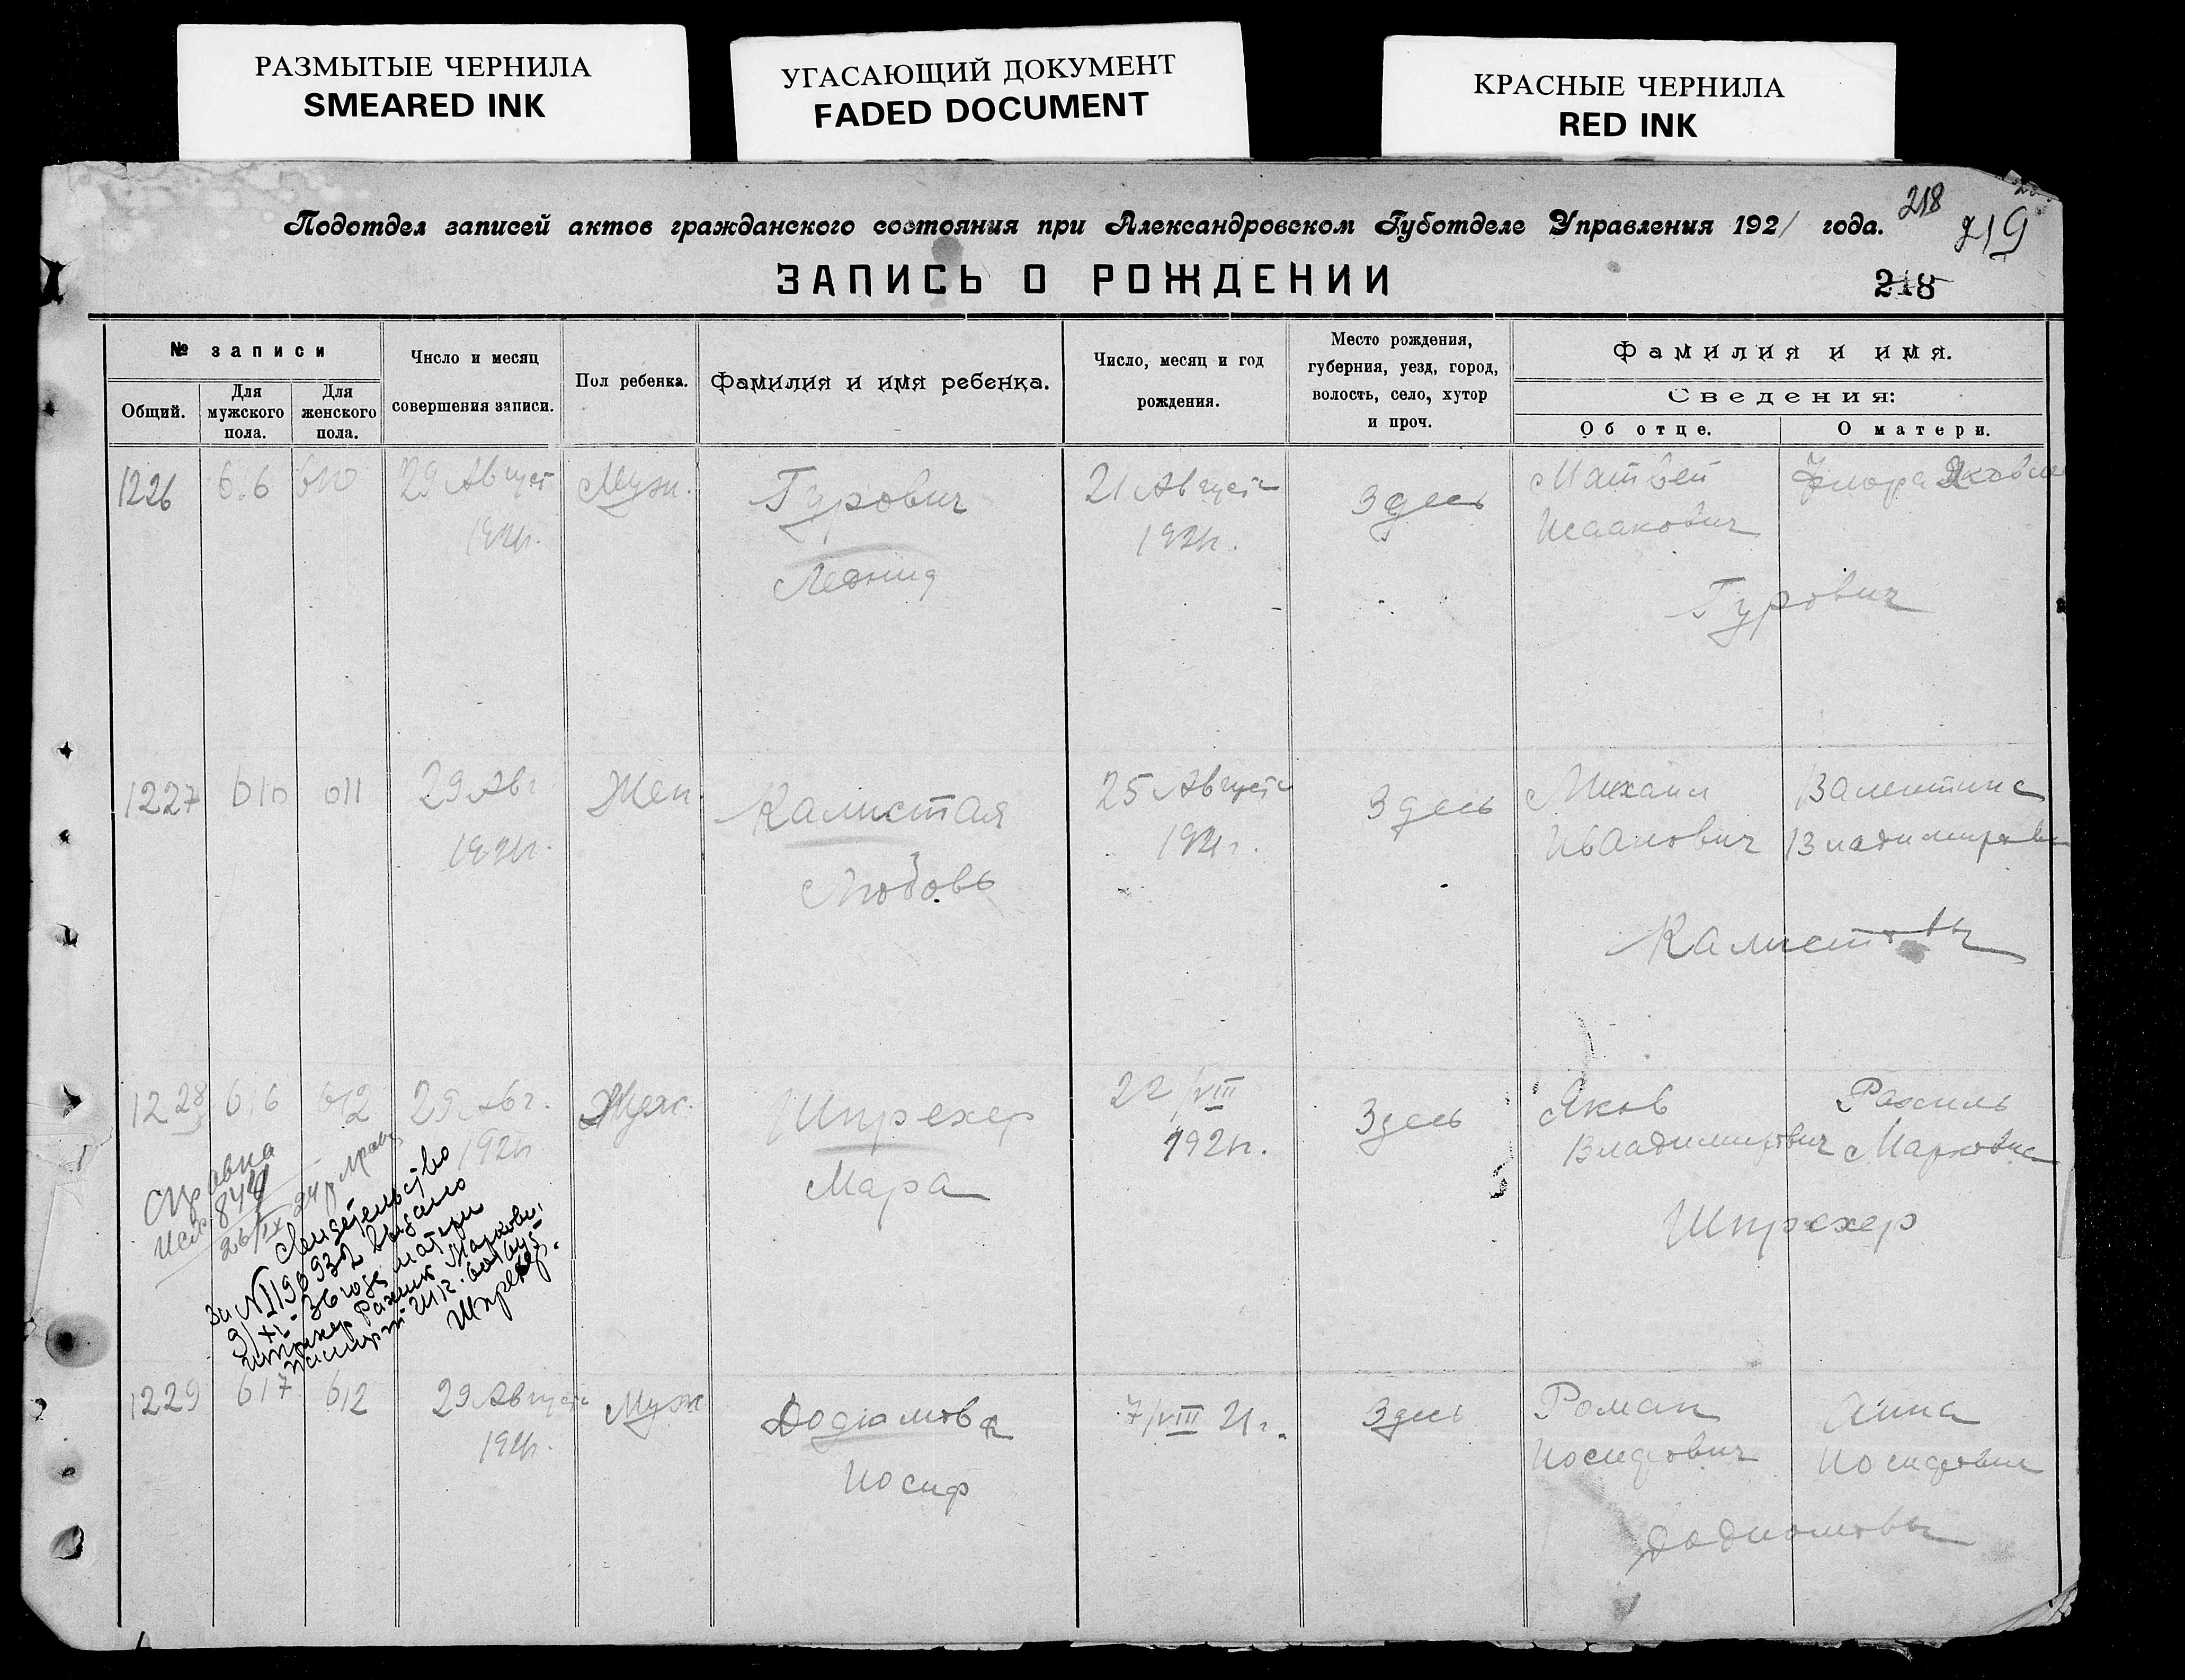 РАЗМЫТЫЕ ЧЕРНИЛА
SMEARED INK
УГАСАЮЩИЙ ДОКУМЕНТ
FADED DOCUMENT
КРАСНЫЕ ЧЕРНИЛА
RED INK
218
219
Подотдел записей актов гражданского состояния при Александровском Губотделе Управления 1921 года.
ЗАПИСЬ О РОЖДЕНИИ
218
№ записи
Общий.
Для мужского пола.
Для женского пола.
Число и месяц
совершения записи.
Пол ребенка.
Фамилия и имя ребенка.
Число, месяц и год
рождения.
Место рождения,
губерния, уезд, город,
волость, село, хутор
и проч.
Фамилия и имя.
Сведения:
Об отце.
О матери.
1226 616 610 29 Август Муж. Гурович 21 Августа Здесь Матвей Флора Яковл
1921г. 1921г. Исаакович
Леонид
Гурович
1227 616 611 29 Авг Жен Калистая 25 Августа Здесь Михаил Валентина
1921г. 1921г. Иванович Владимировн
Любовь
Калистовы
1228 616 612 29 Авг. Жен. Шпрехер 22/VIII Здесь Яков Рахиль
1921г 1921г. Владимирович Марковна
Мара
Шпрехер
Справка
Исх 844
26/IX 24г
Свидетельство
за № 1190932 выдано
9/XI-36 года матери
Шпрехер Рахиль Марковн.
паспорт
Шпрехер.
1229 617 612 29 Августа Муж Додиомова 7/VIII 21г. Здесь Роман Анна
1921г. Иосифович Иосифовна
Иосиф
Додиомовы